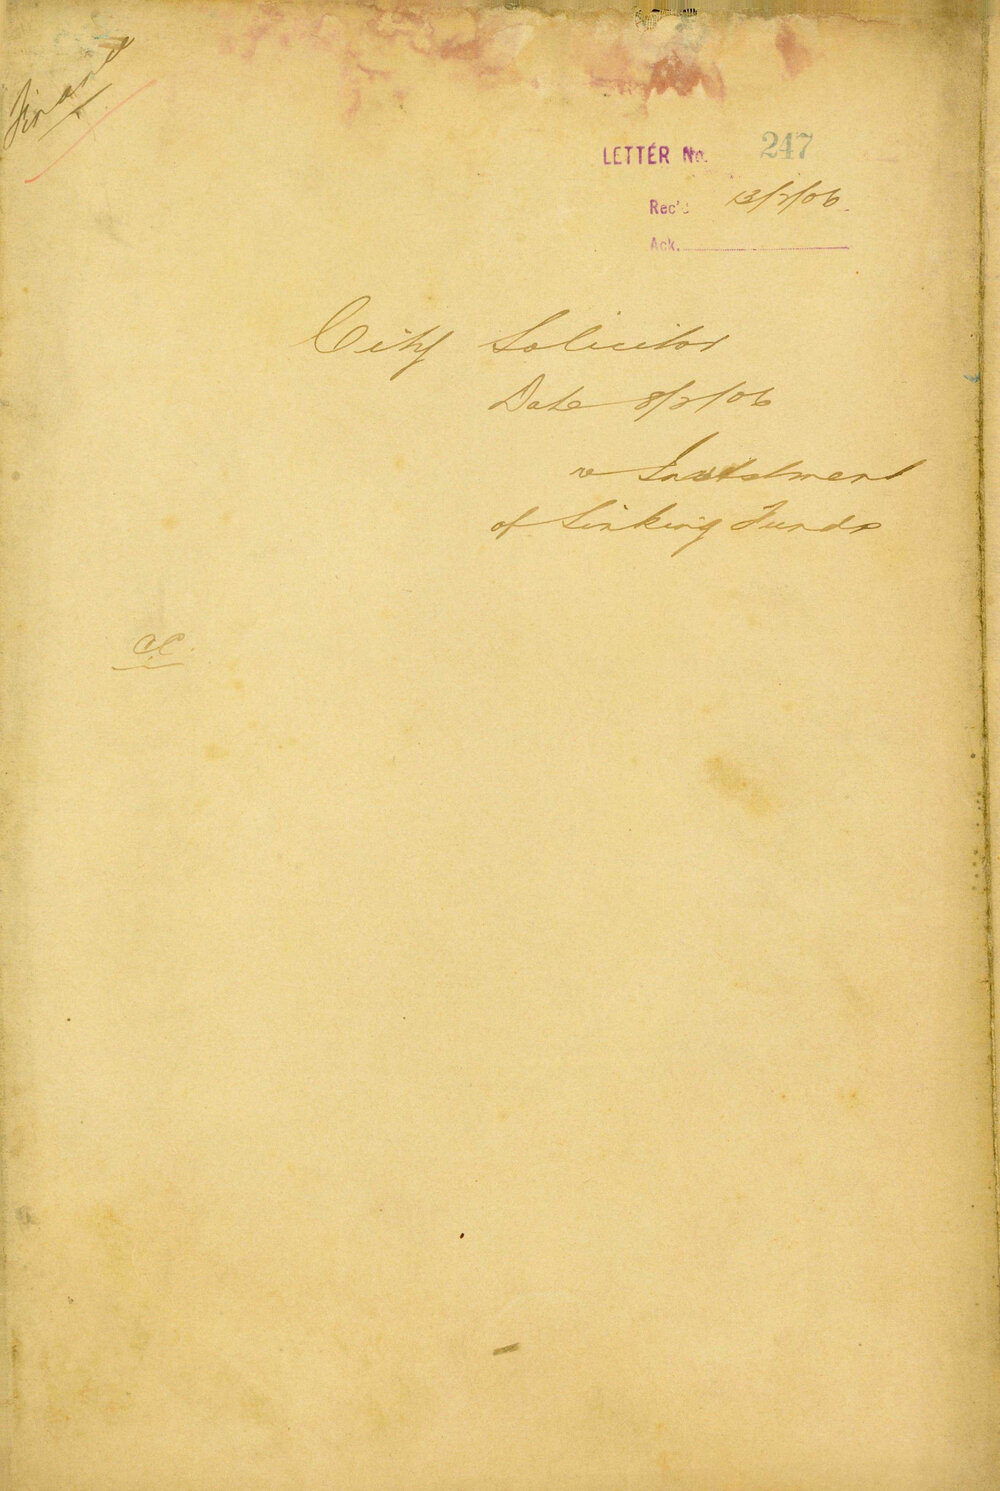 Finance
LETTER No. 247
Rec'd 13/2/06
Ack.
City Solicitor
Date 8/2/06
re Investment
of Sinking Funds